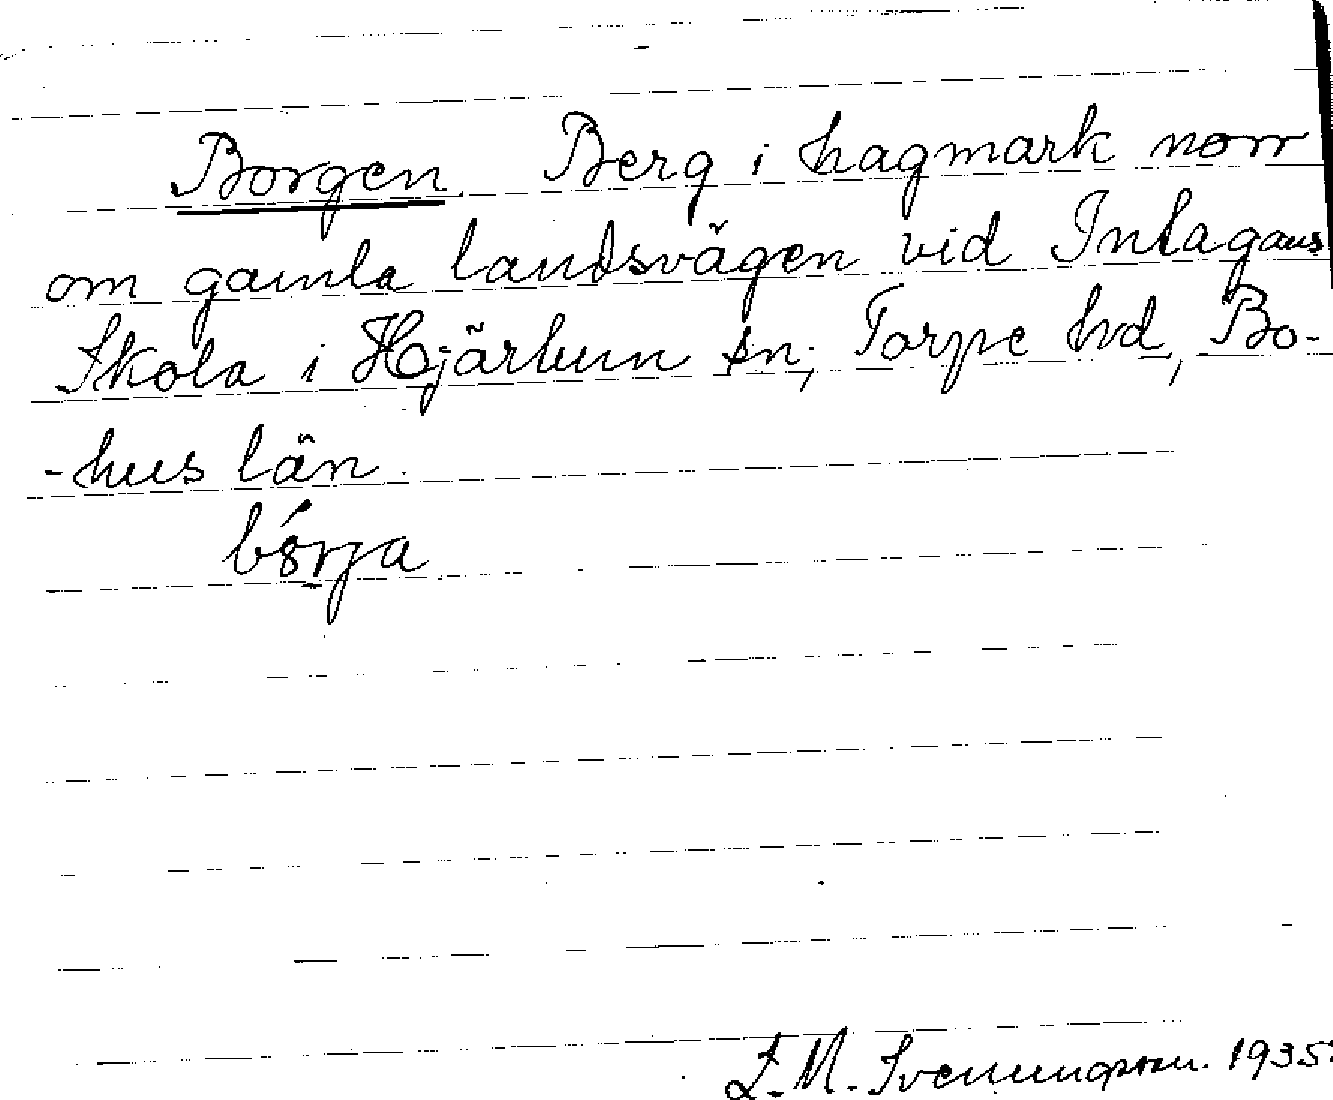 Borgen Berg i hagmark norr
om gamla landsvägen vid Inlagans
Skola i Hjärtum sn, Torpe hd, Bo-
-hus län.
bórja
L. M. Svenungsson. 1935.